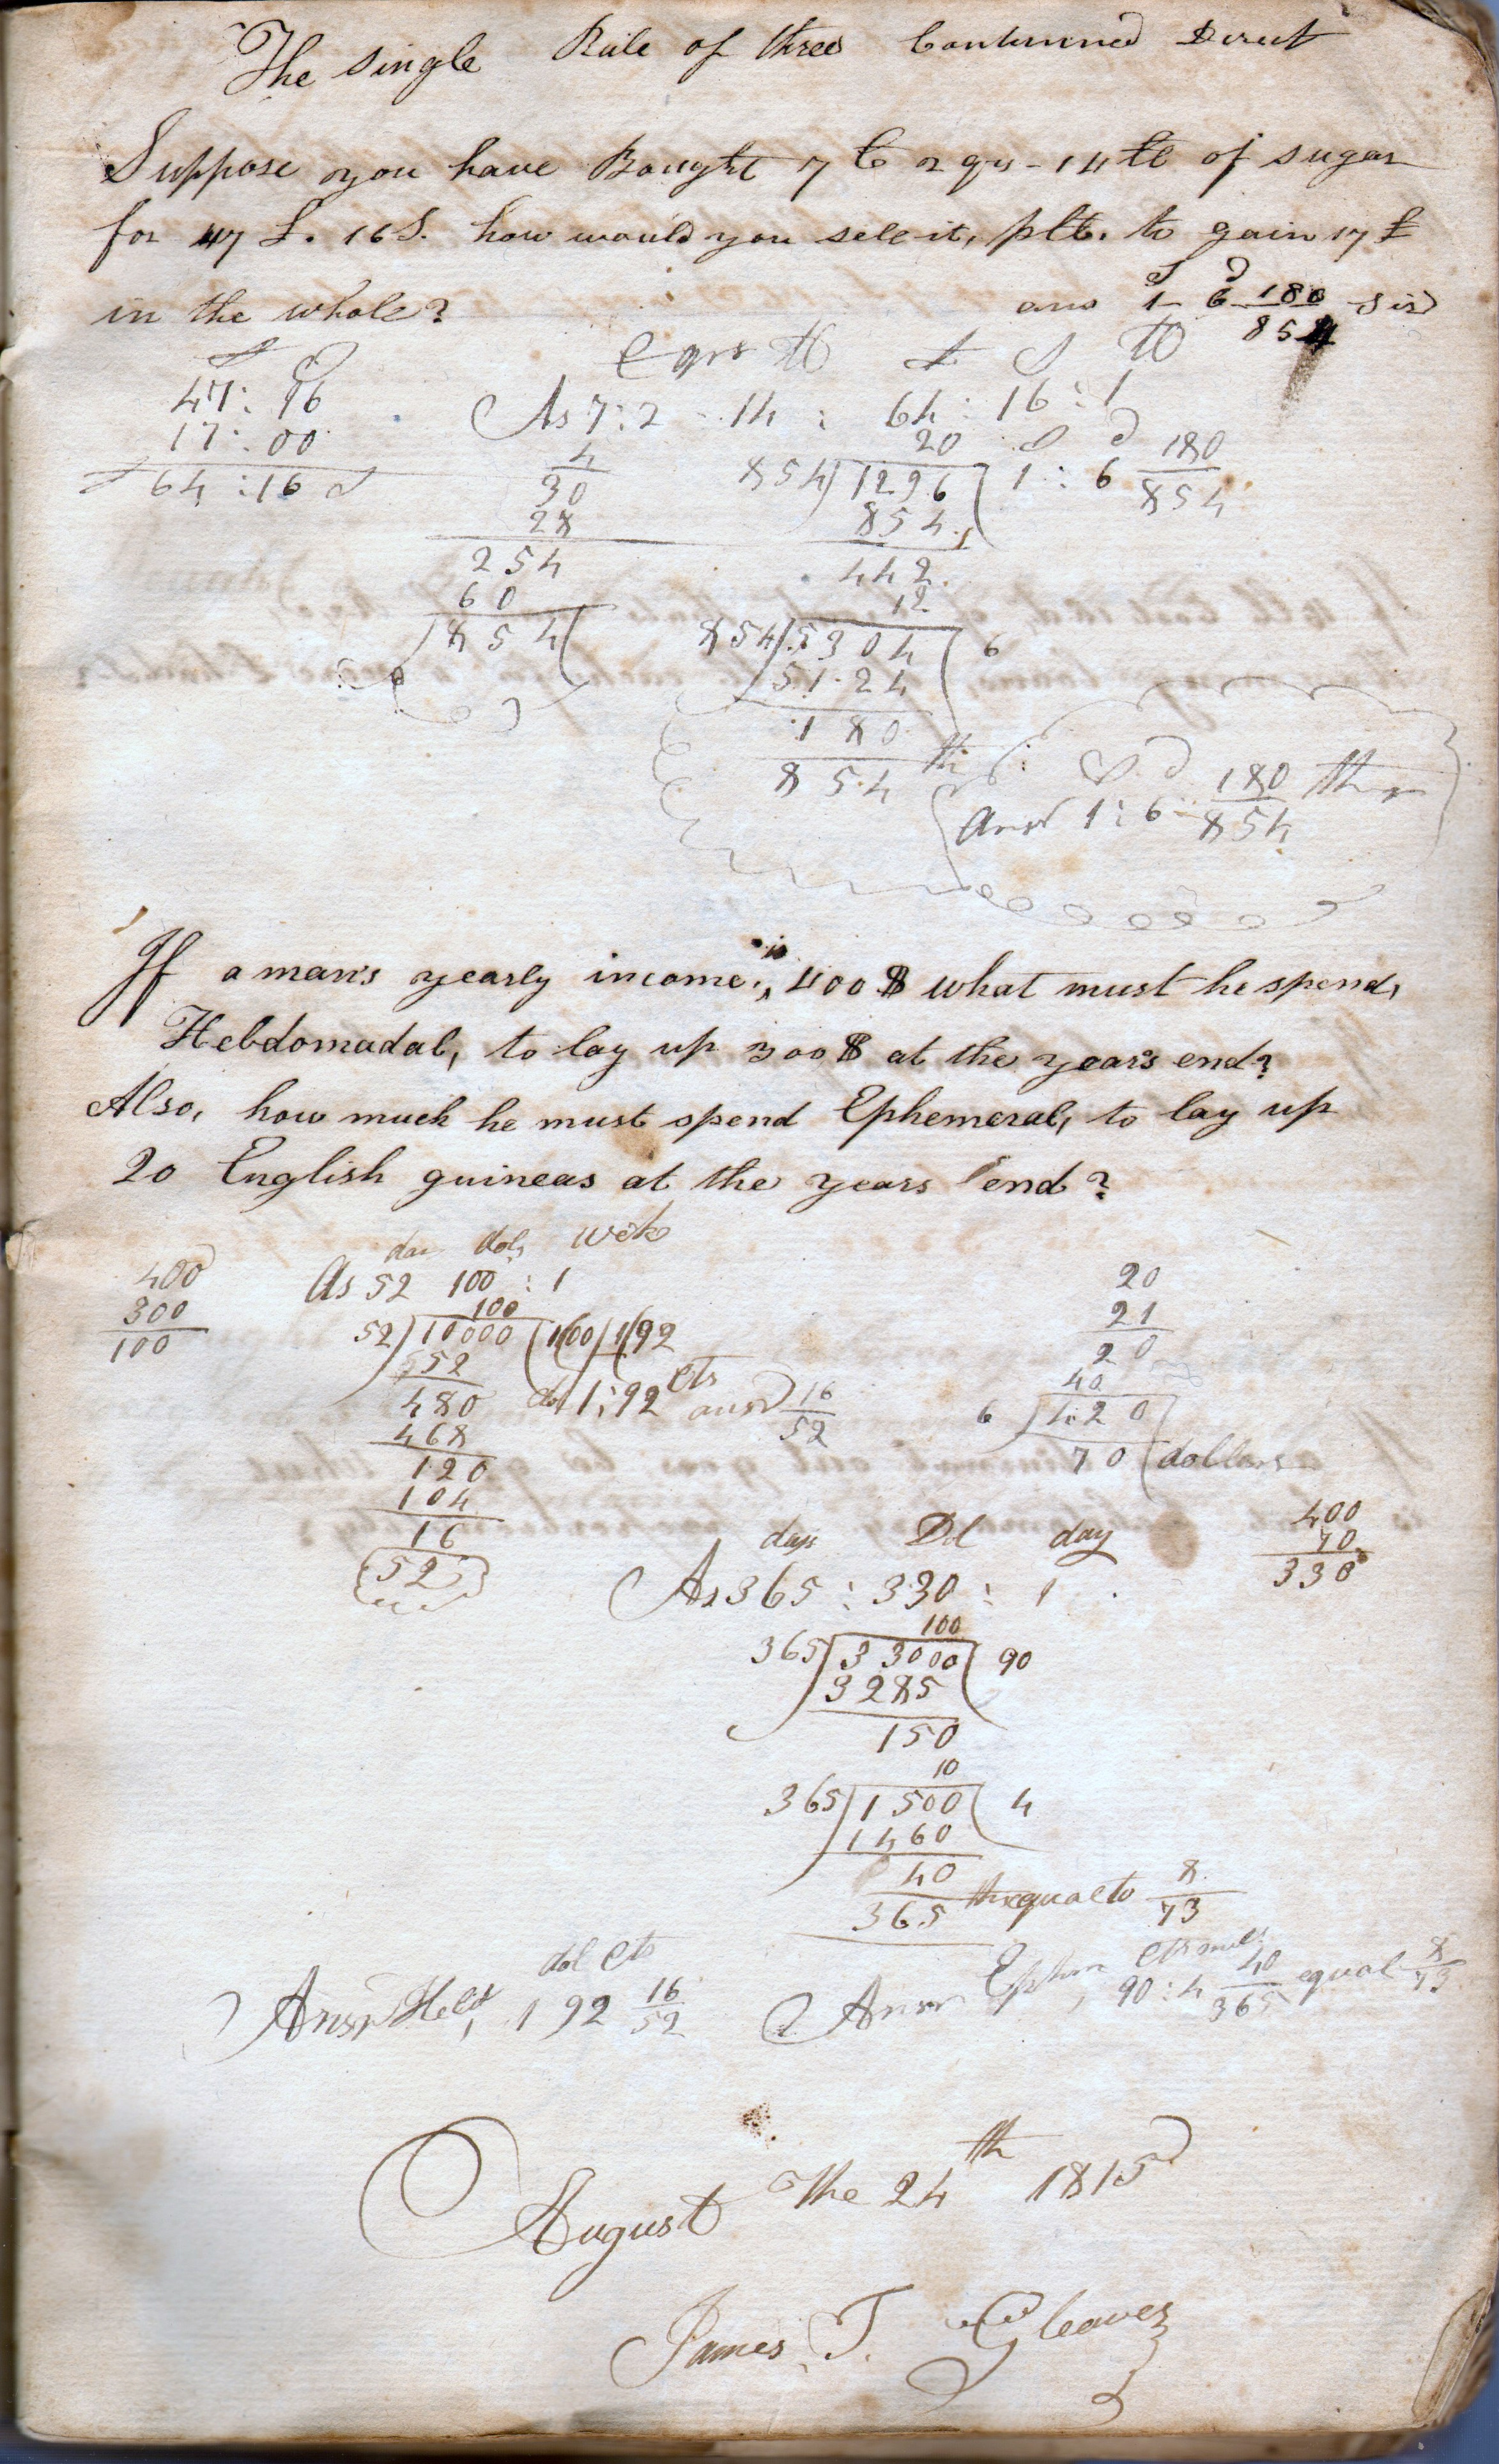 The single Rule of three Continued Direct
Suppose you have Bought 7 C 2 qrs - 14 lb of sugar
for 47 £. 16 S. how would you sell it, p lb. to gain 17 £
in the whole?
S d
ans 1 - 6 180/854 
£ S
47 : 16
17 : 00
£ 64 : 16 S
C qrs lb £ S lb
As 7 : 2 - 14 : 64 : 16 : 1
4
30
28
254
60
854
20
854) 1296 ( 1 : 6 180/854
S d
854
442
12
854) 5304 ( 6
5124
180
854 th
S d
Ans 1 : 6 180/854 ths
If a man's yearly income, is 400 $ what must he spend,
Hebdomadal, to lay up 300 $ at the year's end?
Also, how much he must spend Ephemeral, to lay up
20 English guineas at the years end?
400
300
100
dol wek
As 52 100 : 1
100
52) 10000 ( 1|00) 1|92
52
480
468
120
104
16
52
dol 1 : 92 cts ansr 16/52
20
21
20
40
6 ) 420
70 dollars
400
70
330
days Dol day
As 365 : 330 : 1
100
365) 33000 ( 90
3285
150
10
365) 1500 ( 4
1460
40
365 ths equal to 8/73
dol cts
Ansr Hebd, 1 92 16/52
cts mills
Ansr Ephm, 90 : 4 40/365 equal 8/73
August the 24th 1815
James T. Gleaves